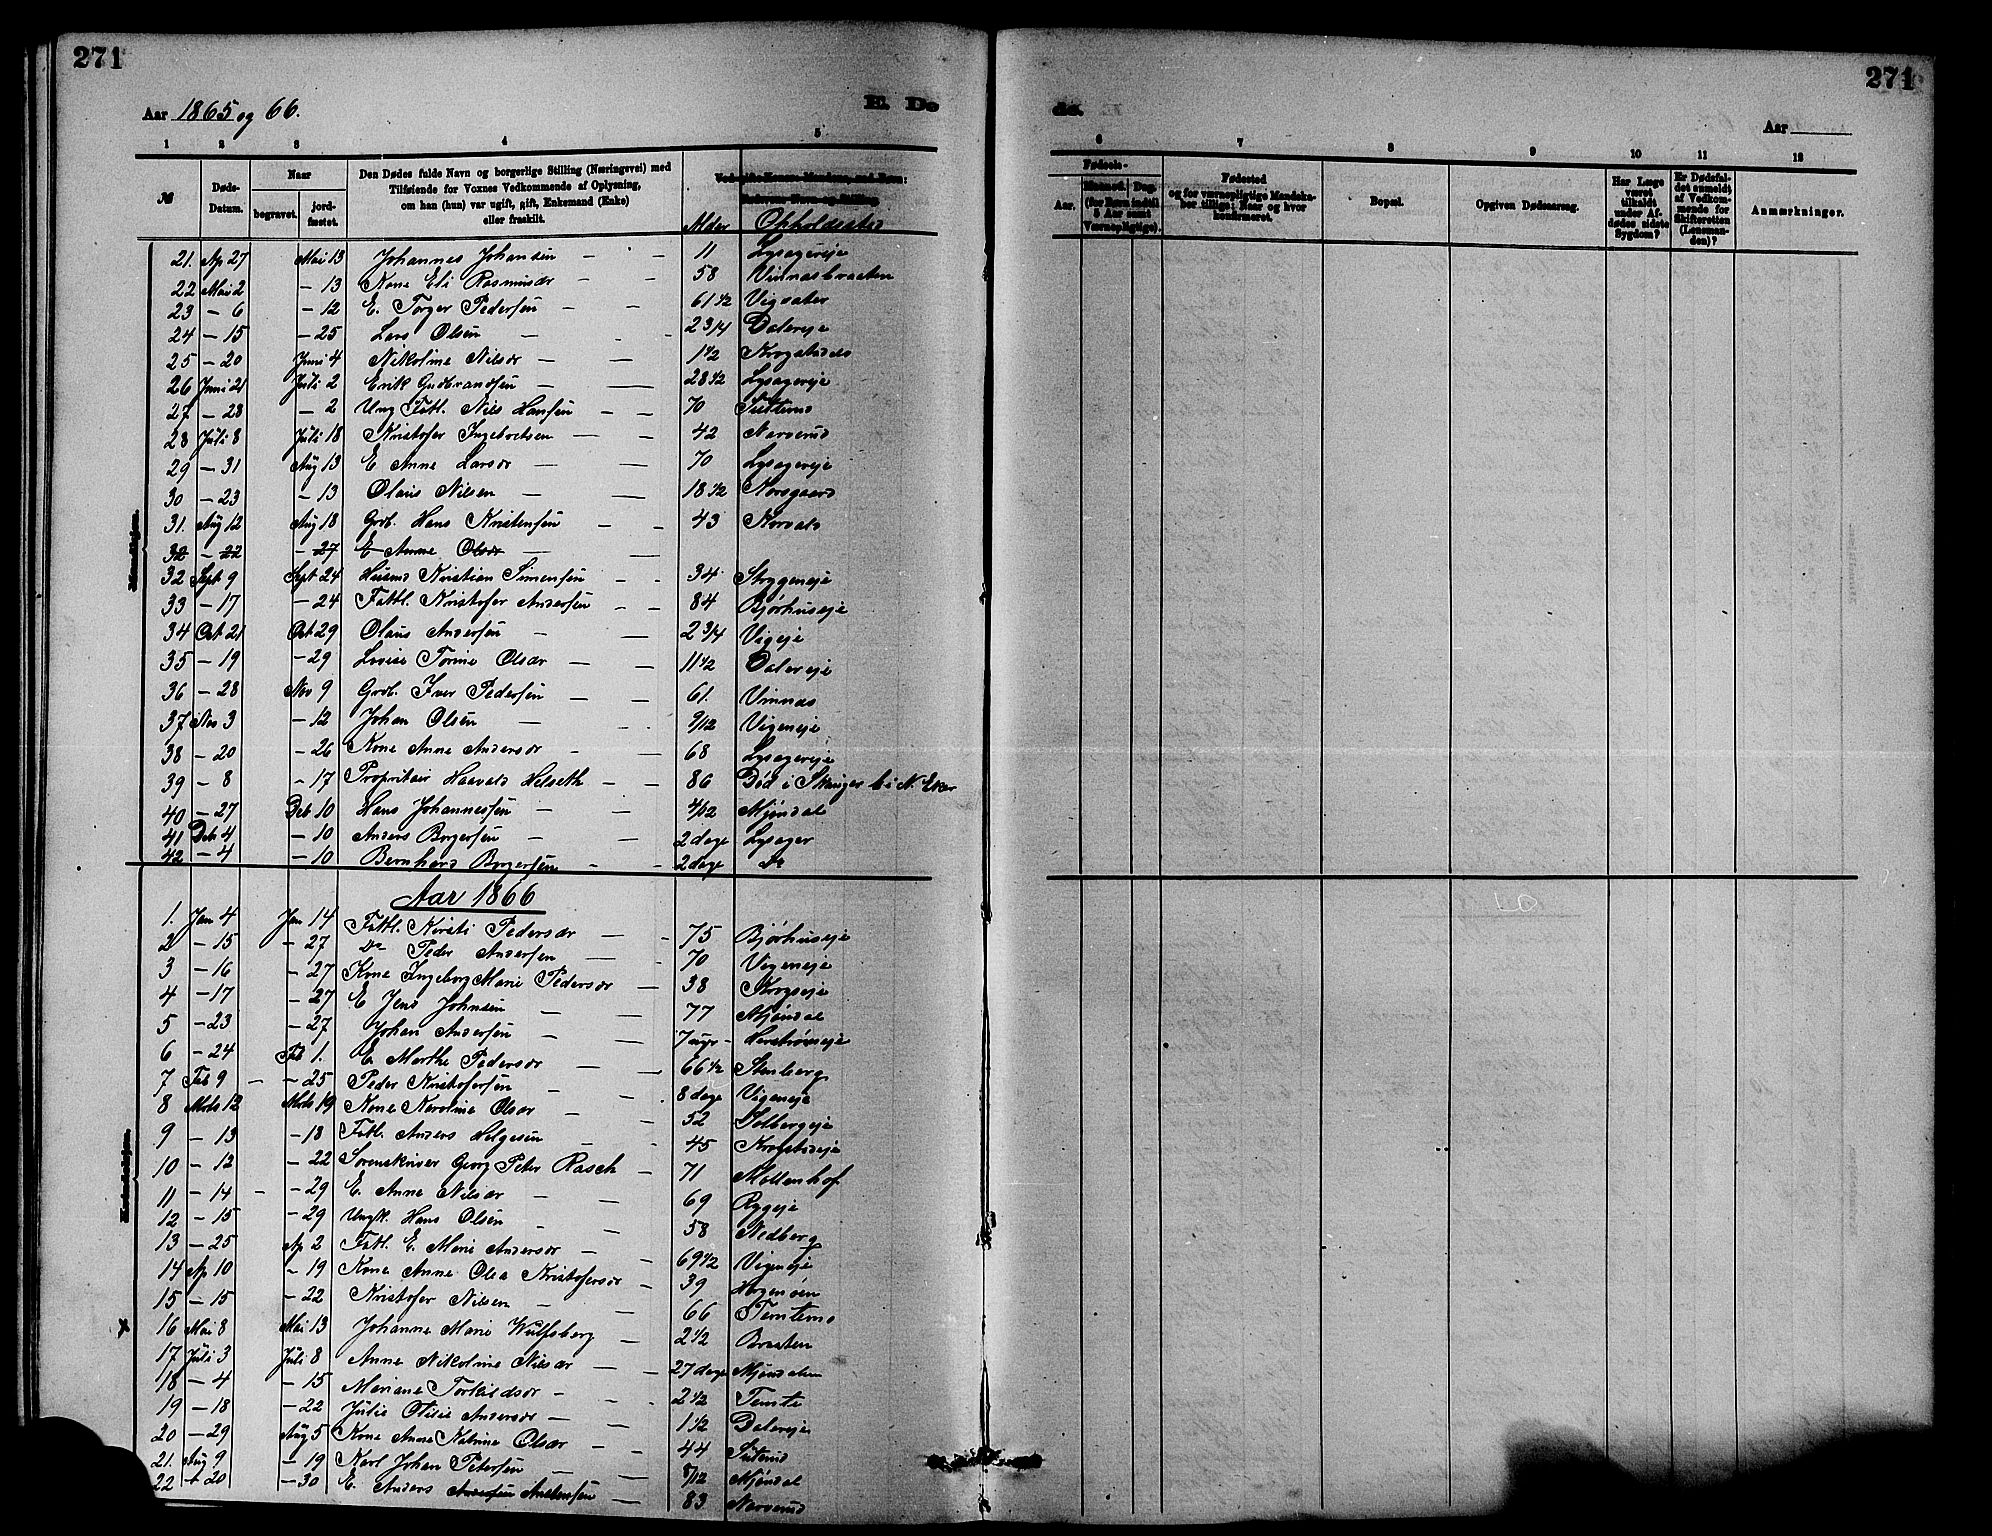 271
271
Aar 1865 og 66.
E. Dø
de.
Aar
1 2 3 4 5
6 7 8 9 10 11 12
№
Døds-Datum.
Naar
begravet.
jordfæstet.
Den Dødes fulde Navn og borgerlige Stilling (Næringsvei) med
Tilføiende for Voxnes Vedkommende af Oplysning,
om han (hun) var ugift, gift, Enkemand (Enke)
eller fraskilt.
Alder
Opholdssted
Fødsels-
Aar.
Maaned. Dag.
(for Børn indtil 5 Aar samt Værnepligtige).
Fødested
og for værnepligtige Mandskaber tillige: Naar og hvor konfirmeret.
Bopæl.
Opgiven Dødsaarsag.
Har Læge været tilkaldt under Afdødes sidste Sygdom?
Er Dødsfaldet anmeldt af Vedkommende for Skifteretten (Lensmanden)?
Anmærkninger.
21. Ap 27 Mai 13 Johannes Johansen — — 11 Lysagereje
22 Mai 2 — 13 Kone Eli Rasmusdr — — 58 Vinnasbraaten
23 — 6 — 12 E. Torger Pedersen — — 61 1/2 Vigsæter
24 — 15 — 25 Lars Olsen — 2 3/4 Dalereje
25 — 20 Juni 4 Nikoline Nilsdr — — 1 1/2 Krogstadeie
26 Juni 21 Juli 2 Erik Gudbrandsen — — 28 1/2 Lysagereje
27 — 28 — 2 Ung. Fattl. Nils Hansen — — 70
28 Juli 8 Juli 18 Kristofer Ingebretsen — — 42 Narverud
29 — 31 Aug 13 E Anne Larsdr — — 70 Lysagereje
30 — 23 — 13 Olaus Nilsen — — 18 1/2 Korsgaard
31. Aug 12 Aug 18 Grdb. Hans Kristensen — — 43
32 — 22 — 27 E Anne Olsdr —
32 Sept 9 Sept 24 Husmd Kristian Simensen — — 34 Stryggeneje
33 — 17 — 24 Fattl. Kristofer Andersen — — 84 Bjørhuseje
34 Oct 21 Oct 29 Olaus Andersen — — 2 3/4 Vigeje
35 — 19 — 29 Lovise Torine Olsdr — — 11 1/2 Dalereje
36 — 28 Nov 9 Grdb. Iver Pedersen — — 61. Vinnas
37 Nov 3 — 12 Johan Olsen — 9/12 Vigeneje
38 — 20 — 26 Kone Anne Andersdr — — 68 Lysagereje
39 — 8 — 17 Propritair Haavald Helseth — — 86 Død i Skauger b. i N. Eker
40 — 27 Deb 10 Hans Johannessen — — 4/12 Mjøndal
41 Deb 4 — 10 Anders Borgersen — — 2 dage Lysager
42 — 4 — 10 Bernhard Borgersen — — 2 dage Do
Aar 1866
1. Jan 4 Jan 14 Fattl. Kirsti Pedersdr — — 75 Bjørhuseje
2 — 15 — 27 Do Peder Andersen — 70 Vigeneje
3 — 16 — 27 Kone Ingeborg Marie Pedersdr — — 38 Krogseje
4 — 17 — 27 E Jens Johnsen — — 77 Mjøndal
5 — 23 — 27 Johan Andersen — — 7 uger
6 — 24 Feb 1. E. Marthe Pedersdr — — 66 1/2 Stenberg
7 Feb 9 — — 25 Peder Kristofersen — — 8 dage Vigeneje
8 Marts 12 Marts 19 Kone Karoline Olsdr — — 52 Solbergeje
9 — 13 — 18 Fattl. Anders Helgesen — — 45 Krogstadeje
10 — 12 — 22 Sorenskriver Georg Peter Rasch — 71 Möllenhof
11 — 14 — — 29 E. Anne Nilsdr — — 69 Ryggeje
12 — 15 — 29 Ungk. Hans Olsen — — 58 Nedberg
13 — 25 Ap 2 Fattl. E. Marie Andersdr — — 69 1/2 Vigeneje
14 Ap 10 — 19 Kone Anne Olea Kristofersdr — 39 Hagenøen
15 — 15 — 22 Kristofer Nilsen — — 66
16 Mai 8 Mai 13 Johanne Marie Wulfsberg — 2 1/2 Braaten
17 Juli 3 Juli 8 Anne Nikoline Nilsdr — — 27 dage Mjøndalen
18 — 4 — 15 Mariane Torkildsdr — 2 1/2 Temte
19 — 18 — 22 Julie Otilie Andersdr — — 1 1/2 Dalereje
20 — 29 Aug 5 Kone Anne Katrine Olsdr — — 44
21. Aug 9 — 19 Karl Johan Petersen — — 8/12 Mjøndal
22 — 20 — 30 E. Anders Andersen Amtensen — 83 Narverud